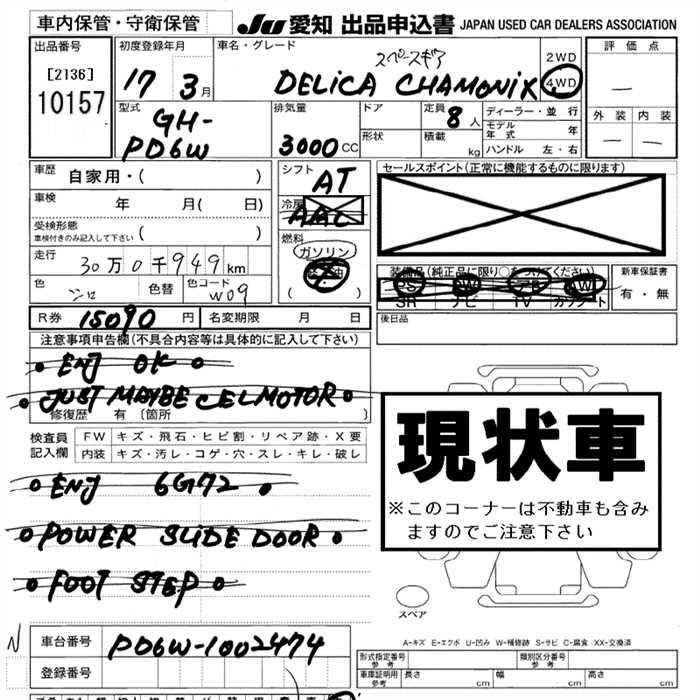 車内保管・守衛保管 JU 愛知 出品申込書 JAPAN USED CAR DEALERS ASSOCIATION
出品番号
[2136]
10157
初度登録年月
17 3月
車名・グレード
スペースギア
DELICA CHAMONIX
2WD
4WD
評価点
—
外装 内装
— —
型式
GH-
PD6W
排気量
3000CC
ドア
形状
定員
8人
積載
kg
ディーラー・並行
モデル年式 年
ハンドル 左・右
車歴 自家用・( )
車検 年 月( 日)
受検形態
車検付きのみ記入して下さい ( )
走行
30万0千949km
色
シロ
色替
色コード
W09
シフト
AT
冷房
AAC
燃料
ガソリン
軽油
( )
セールスポイント(正常に機能するものに限ります)
装備品(純正品に限り○をつけてください)
PS PW AW
SR ナビ TV カワシート
新車保証書
有・無
R券 15090円 名変期限 月 日
後日品
注意事項申告欄(不具合内容等は具体的に記入して下さい)
ENJ OK
JUST MAYBE CELMOTOR
修復歴 有 [箇所 ]
検査員
記入欄
FW キズ・飛石・ヒビ割・リペア跡・X要
内装 キズ・汚レ・コゲ・穴・スレ・キレ・破レ
ENJ 6G72
POWER SLIDE DOOR
FOOT STEP
現状車
※このコーナーは不動車も含み
ますのでご注意下さい
スペア
N
車台番号 PD6W-1002474
登録番号
A-キズ E-エクボ U-凹み W-補修跡 S-サビ C-腐食 XX-交換済
形式指定番号
参考
類別区分番号
参考
車庫証明用
参考
長さ cm 幅 cm 高さ cm